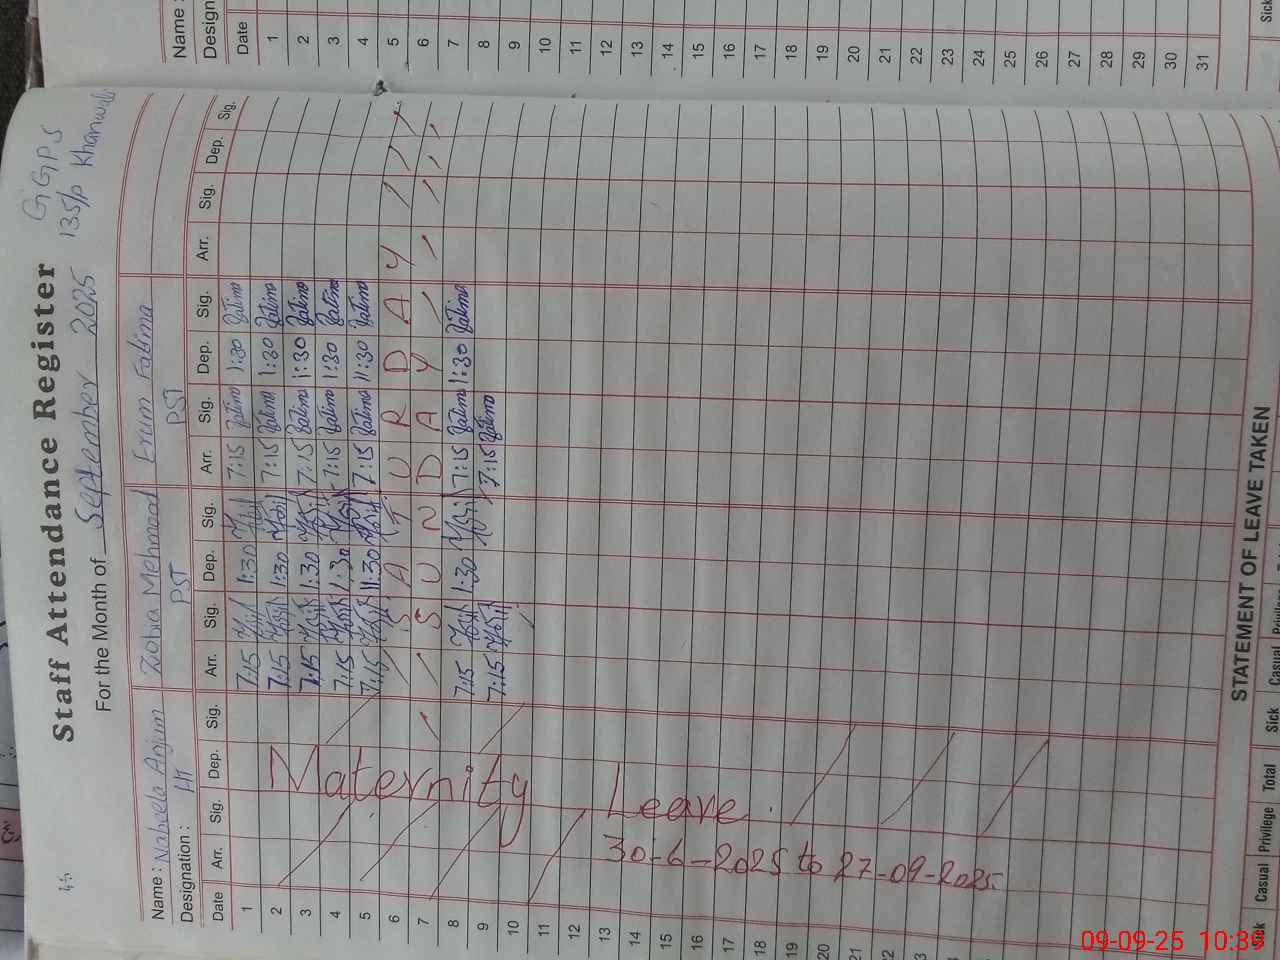 Staff Attendance Register
For the Month of September 2025
GGPS
135/P Khanwali
Name : Nabeela Anjum Zobia Mehmood Erum Fatima
Designation : HT PST PST
Date Arr. Sig. Dep. Sig. Arr. Sig. Dep. Sig. Arr. Sig. Dep. Sig. Arr. Sig. Dep. Sig.
1 7:15 1:30 7:15 Fatima 1:30 Fatima
2 7:15 1:30 7:15 Fatima 1:30 Fatima
3 7:15 1:30 7:15 Fatima 1:30 Fatima
4 7:15 1:30 7:15 Fatima 1:30 Fatima
5 7:15 11:30 7:15 Fatima 11:30 Fatima
6 S A T U R D A Y
7 S U N D A Y
8 7:15 1:30 7:15 Fatima 1:30 Fatima
9 7:15 7:15 Fatima
10
11
12
13
14
15
16
17
18
19
20
21
22
Maternity Leave
30-6-2025 to 27-09-2025
STATEMENT OF LEAVE TAKEN
Sick Casual Privilege Total Sick Casual
Name :
Design
Date
1
2
3
4
5
6
7
8
9
10
11
12
13
14
15
16
17
18
19
20
21
22
23
24
25
26
27
28
29
30
31
Sick
09-09-25 10:39